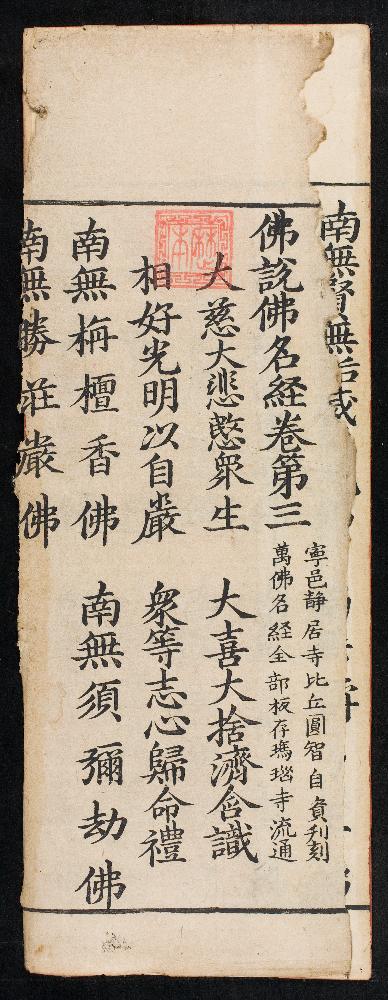 南無賢無垢
佛說佛名経卷第三
寧邑靜居寺比丘圓智自負刋刻
萬佛名経全部板存瑪瑙寺流通
大慈大悲愍衆生　大喜大捨濟含識
相好光明以自嚴　衆等志心歸命禮
南無栴檀香佛　南無須彌劫佛
南無勝莊嚴佛